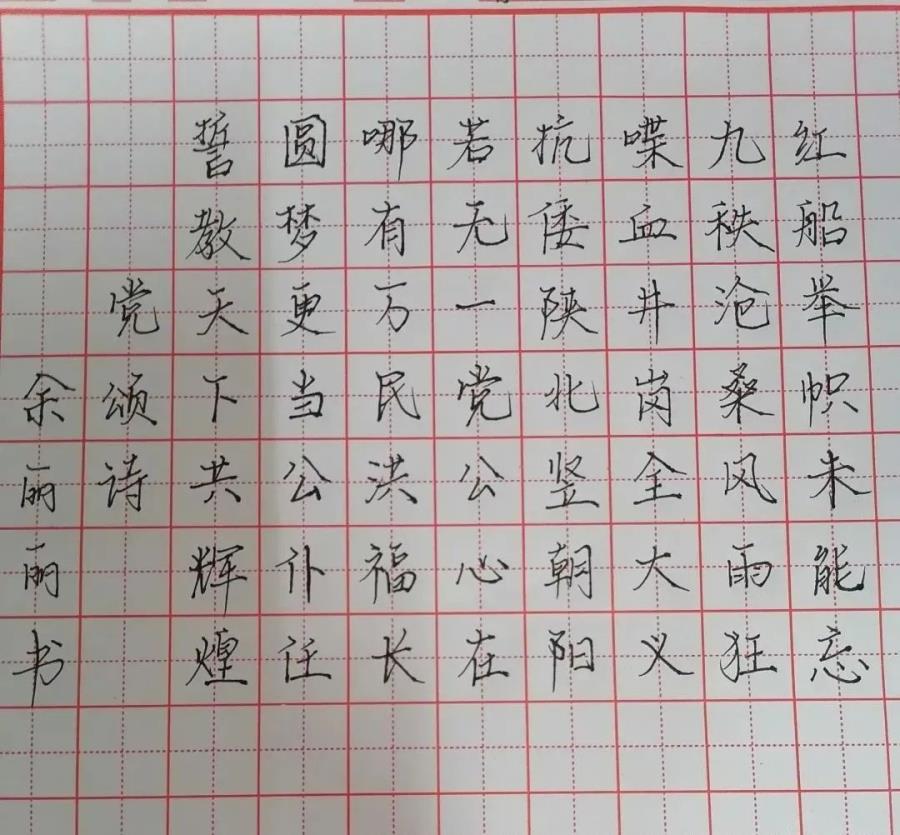 红船举帜未能忘
九秩沧桑风雨狂
喋血井岗全大义
抗倭陕北竖朝阳
若无一党公心在
哪有万民洪福长
圆梦更当公仆任
誓教天下共辉煌
党颂诗
余丽丽书